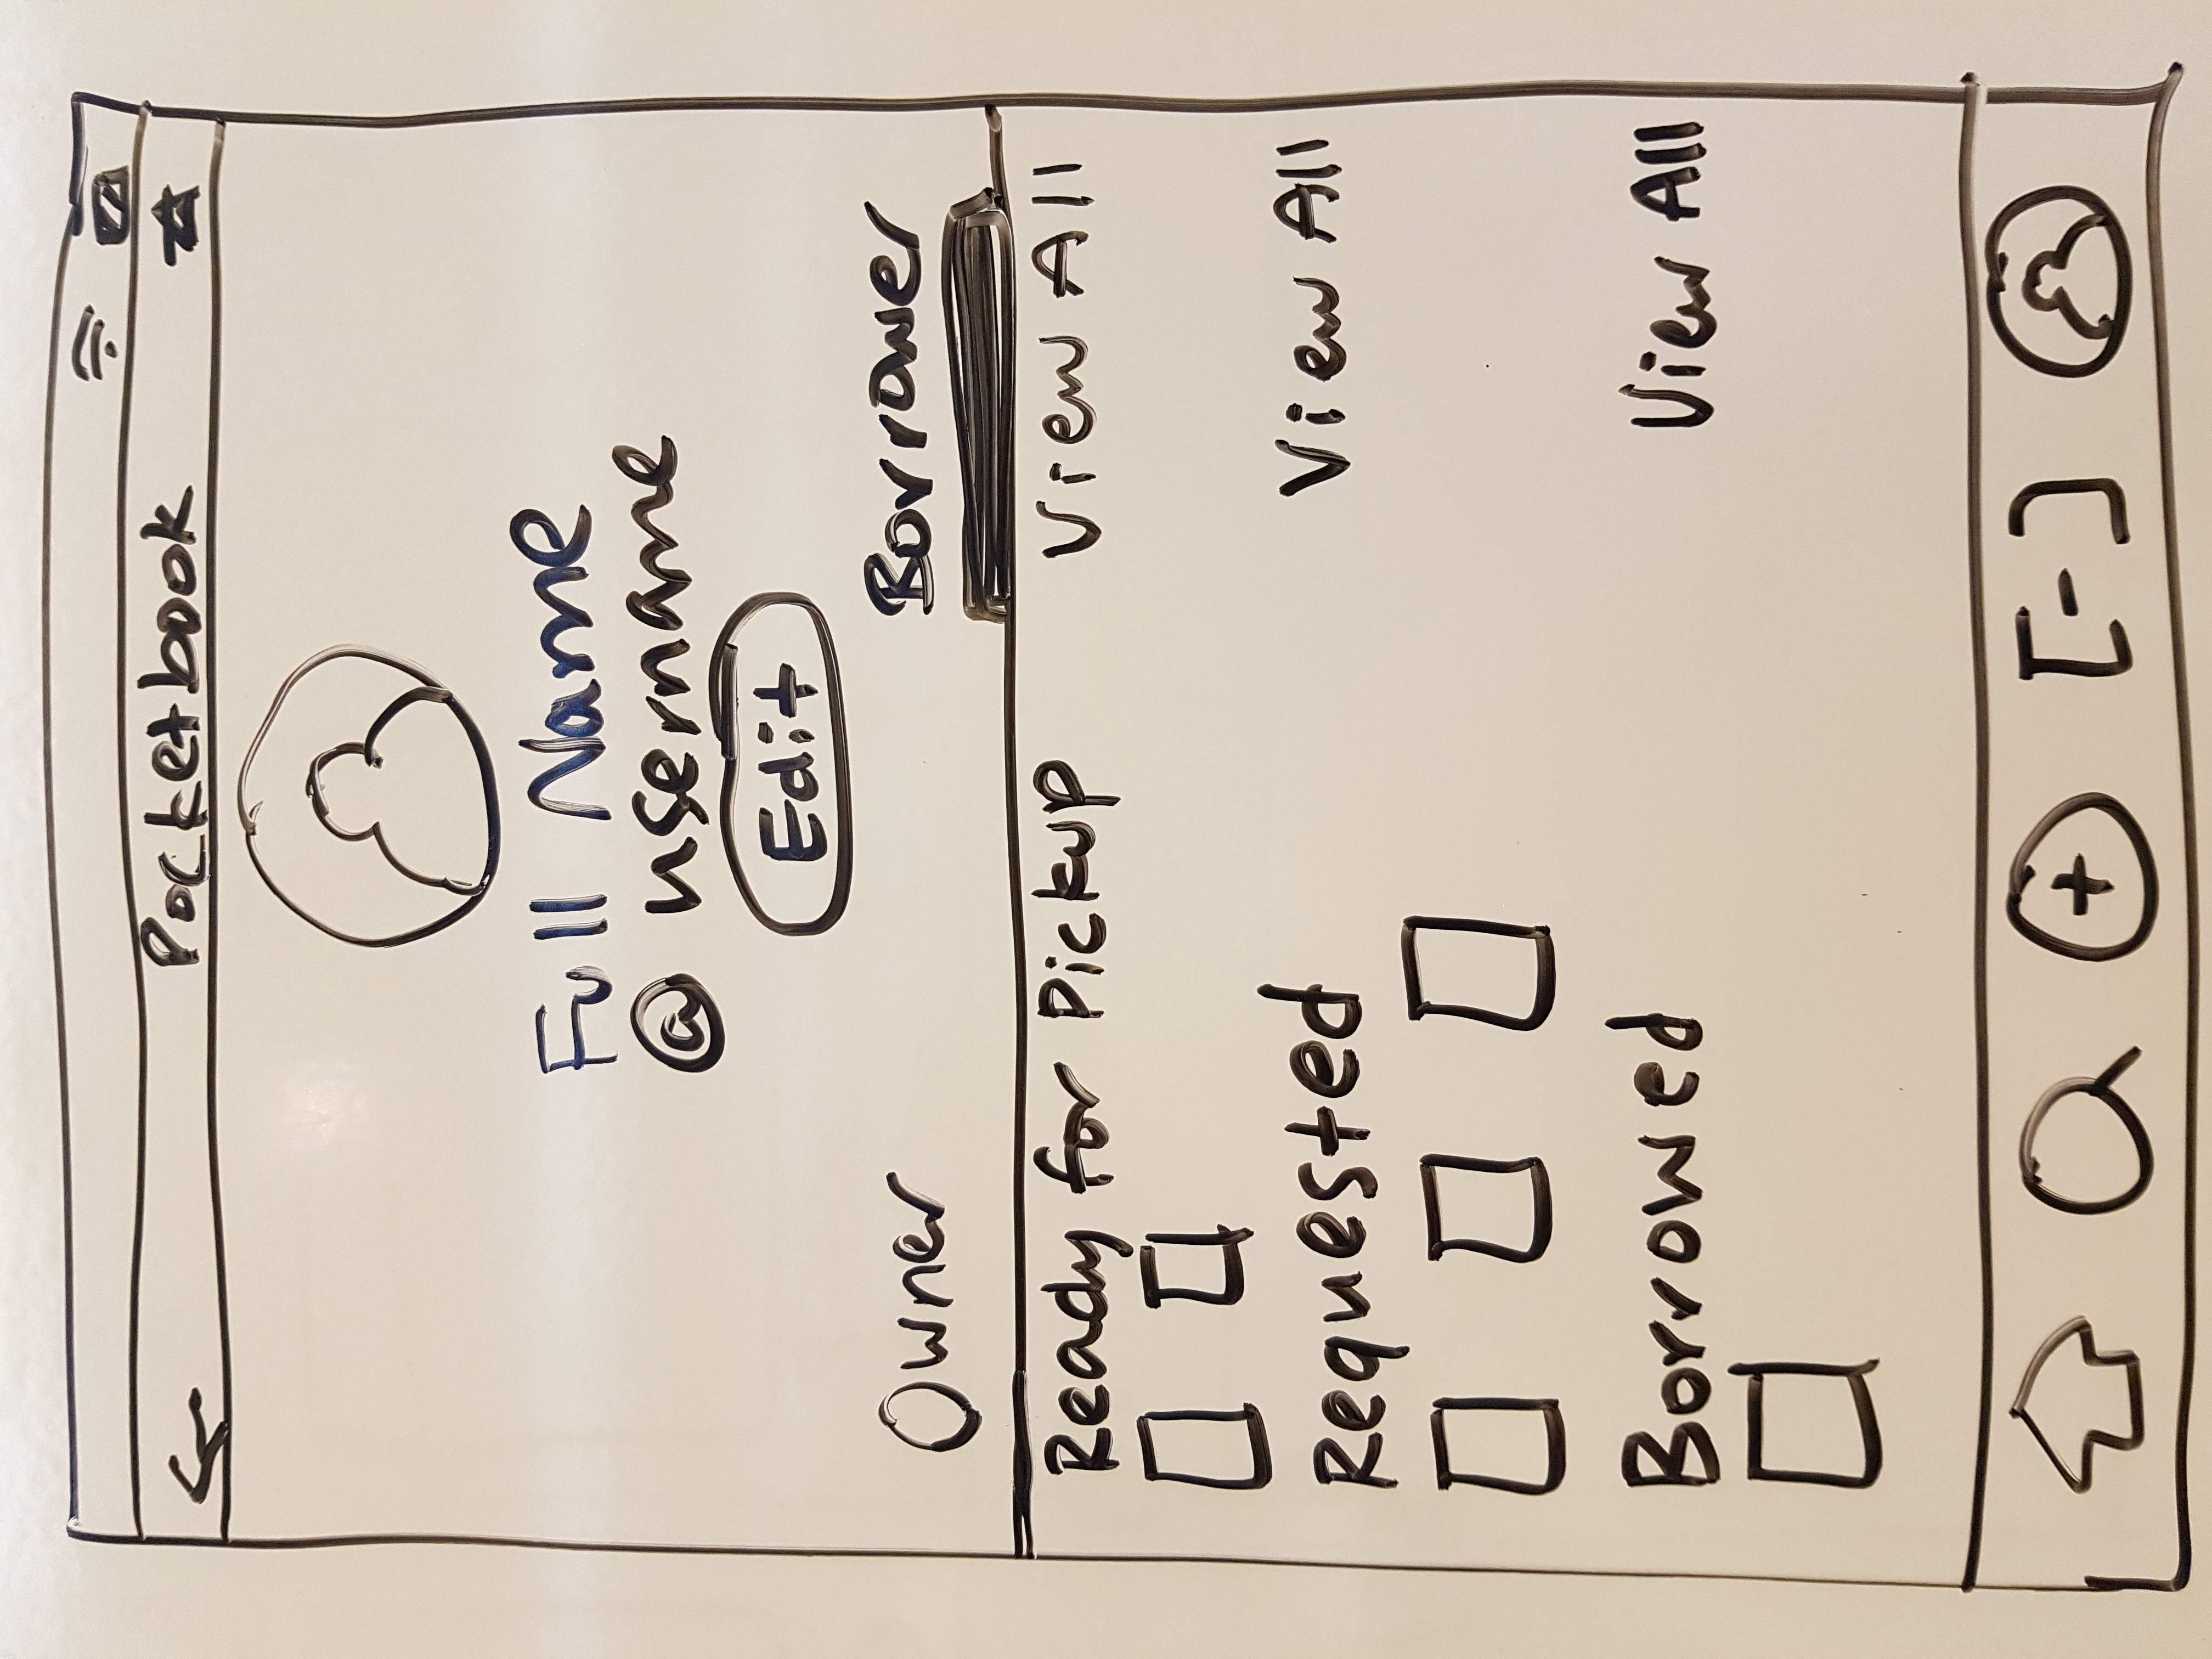 Pocketbook
Full Name
@username
Edit
Owner Borrower
Ready for Pickup View All
Requested View All
Borrowed View All